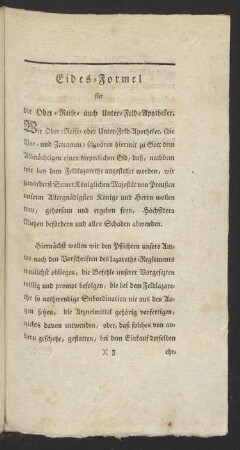 Eides-Formel
für
die Ober- Reise- auch Unter-Feld-Apotheker.
Wir Ober- Reise- oder Unter-Feld-Apotheker, (die
Vor- und Zunamen) schwören hiermit zu Gott dem
Allmächtigen einen körperlichen Eid, daß, nachdem
wir bey dem Feldlazarethe angestellet worden, wir
zuvörderst Seiner Königlichen Majestät von Preußen
unserm Allergnädigsten Könige und Herrn wollen
treu, gehorsam und ergeben seyn, Höchstdero
Nutzen befördern und allen Schaden abwenden.
Hiernächst wollen wir den Pflichten unsers Am-
tes nach den Vorschriften des Lazareths-Reglements
treulichst obliegen, die Befehle unserer Vorgesetzten
willig und prompt befolgen, die bei dem Feldlazare-
the so nothwendige Subordination nie aus den Au-
gen setzen, die Arzneimittel gehörig verfertigen,
nichts davon entwenden, oder, daß solches von an-
dern geschehe, gestatten, bei dem Einkauf derselben
ehr-